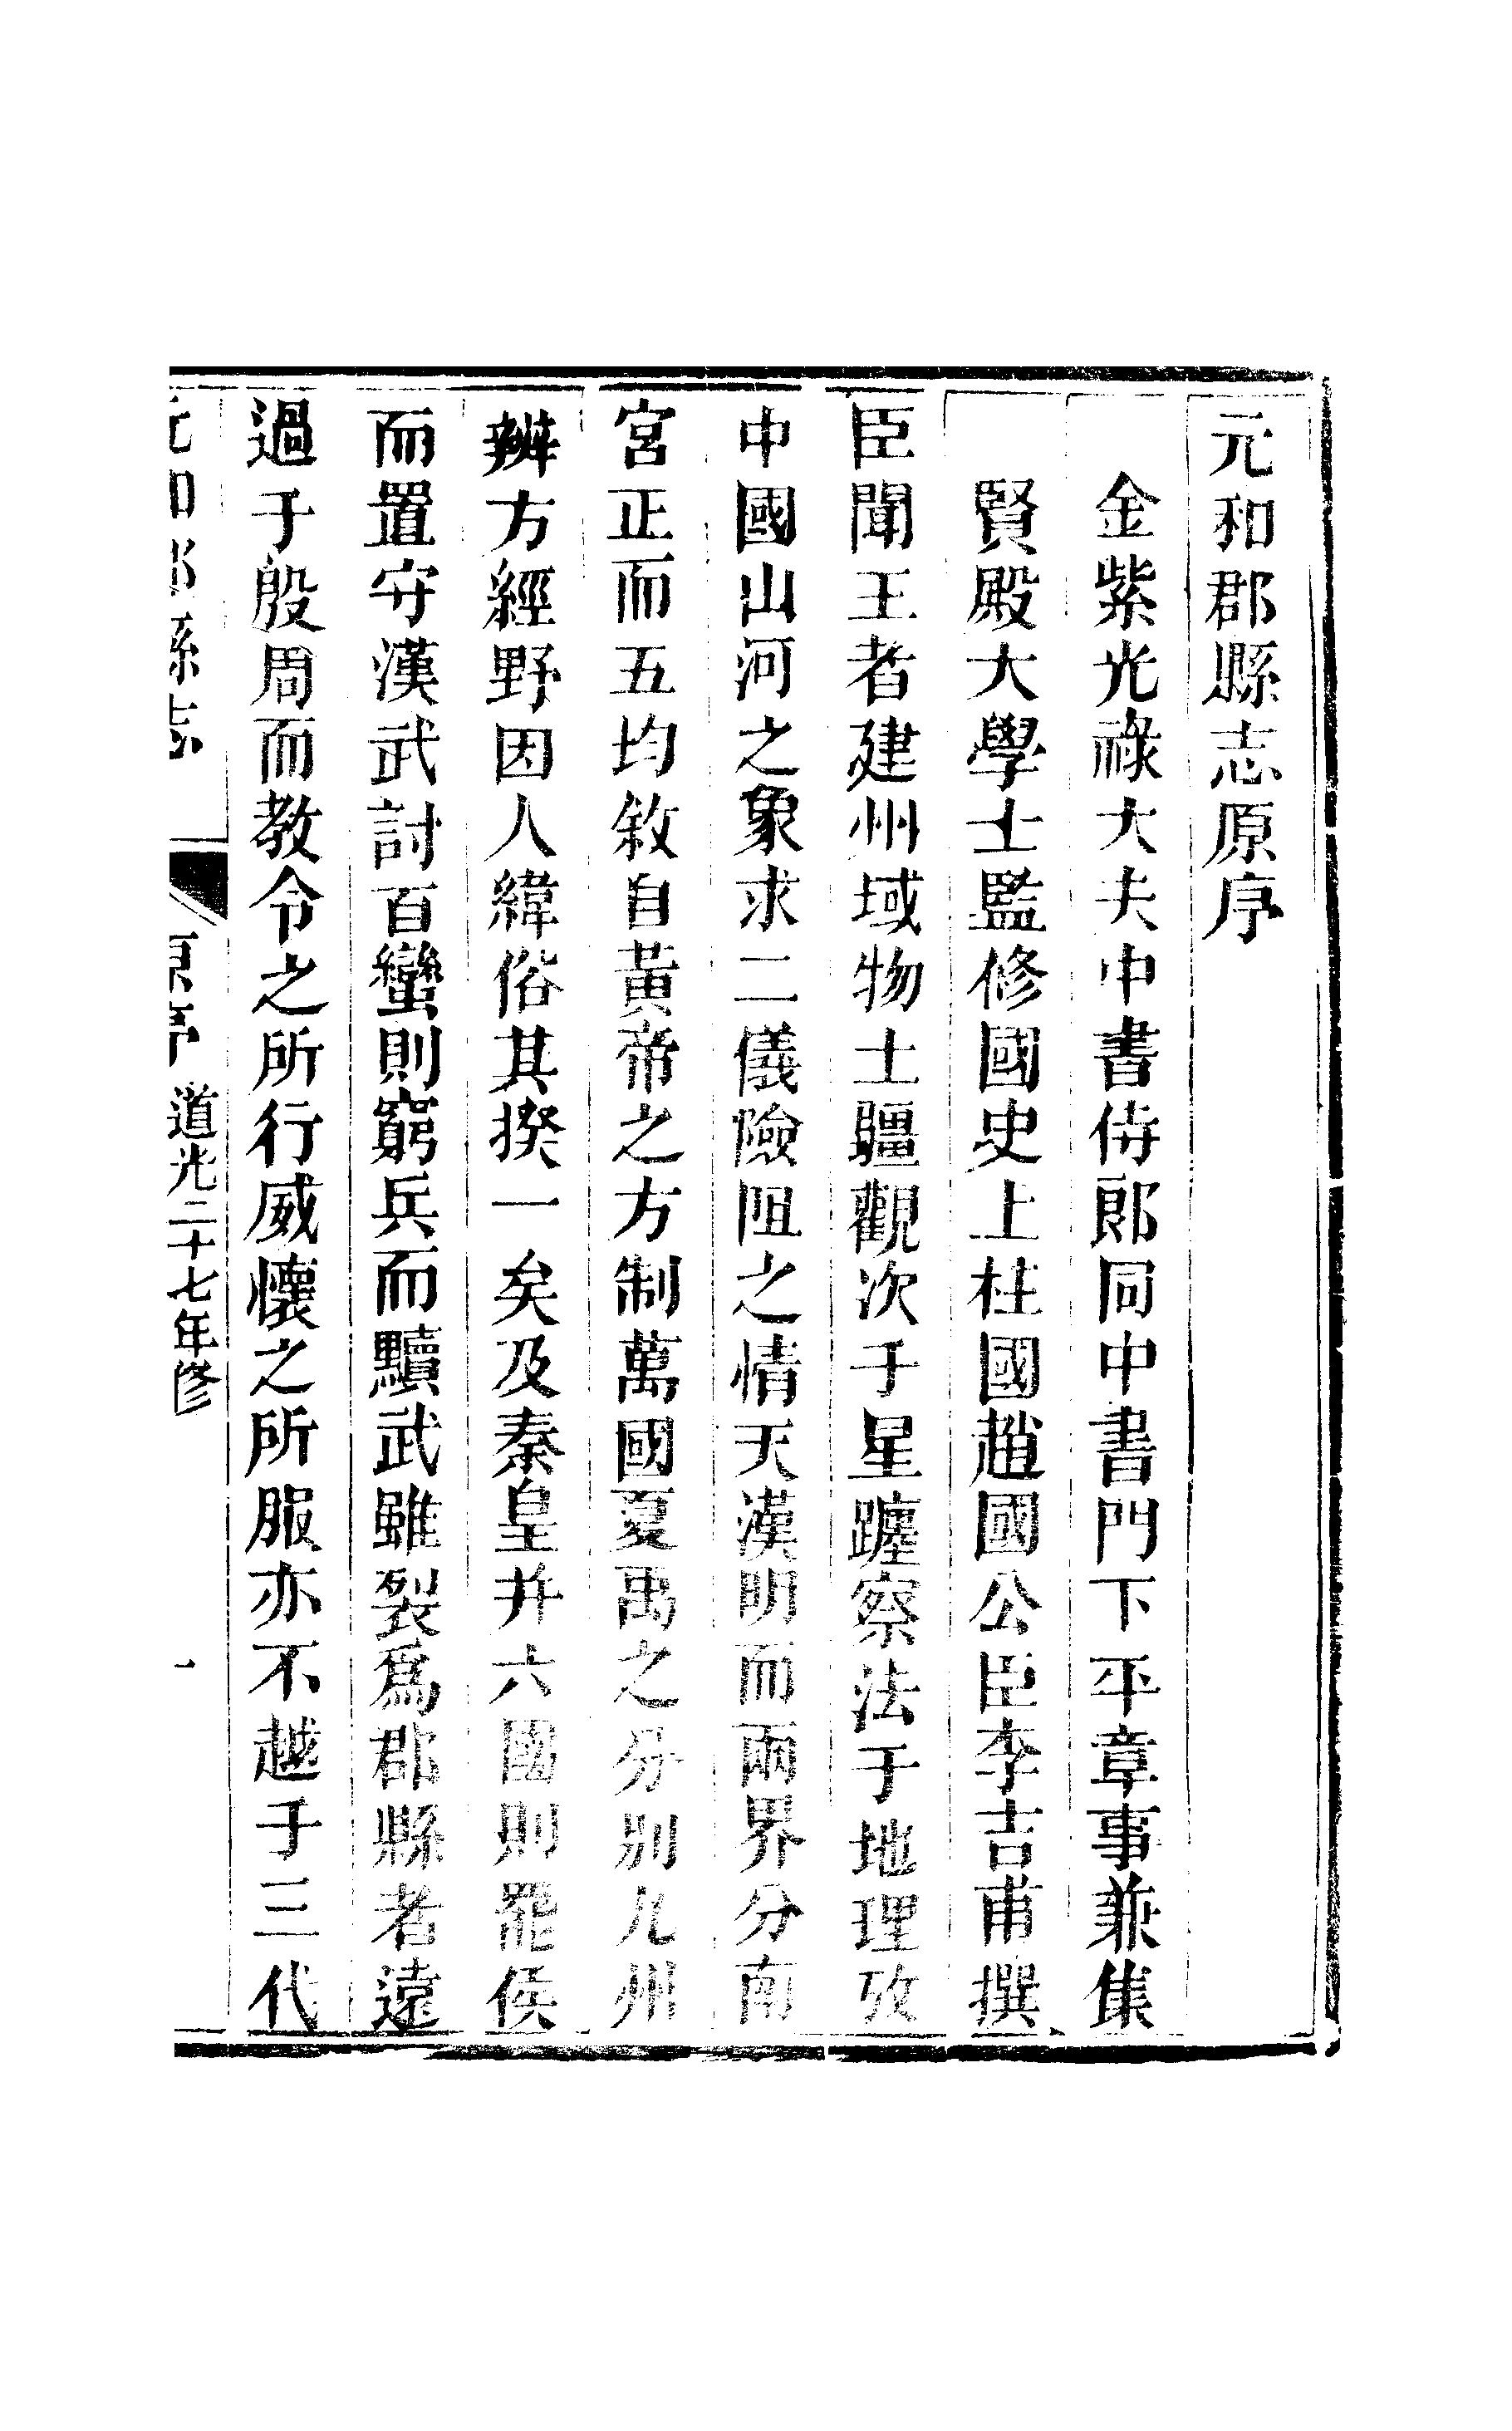 元和郡縣志原序
金紫光祿大夫中書侍郎同中書門下平章事兼集
賢殿大學士監修國史上柱國趙國公臣李吉甫撰
臣聞王者建州域物土疆觀次于星躔察法于地理攷
中國山河之象求二儀險阻之情天漢明而兩界分南
宮正而五均敘自黃帝之方制萬國夏禹之分别九州
辨方經野因人緯俗其揆一矣及秦皇并六國則罷侯
而置守漢武討百蠻則窮兵而黷武雖裂爲郡縣者遠
過于殷周而教令之所行威懷之所服亦不越于三代
元和郡縣志 原序 道光二十七年修 一